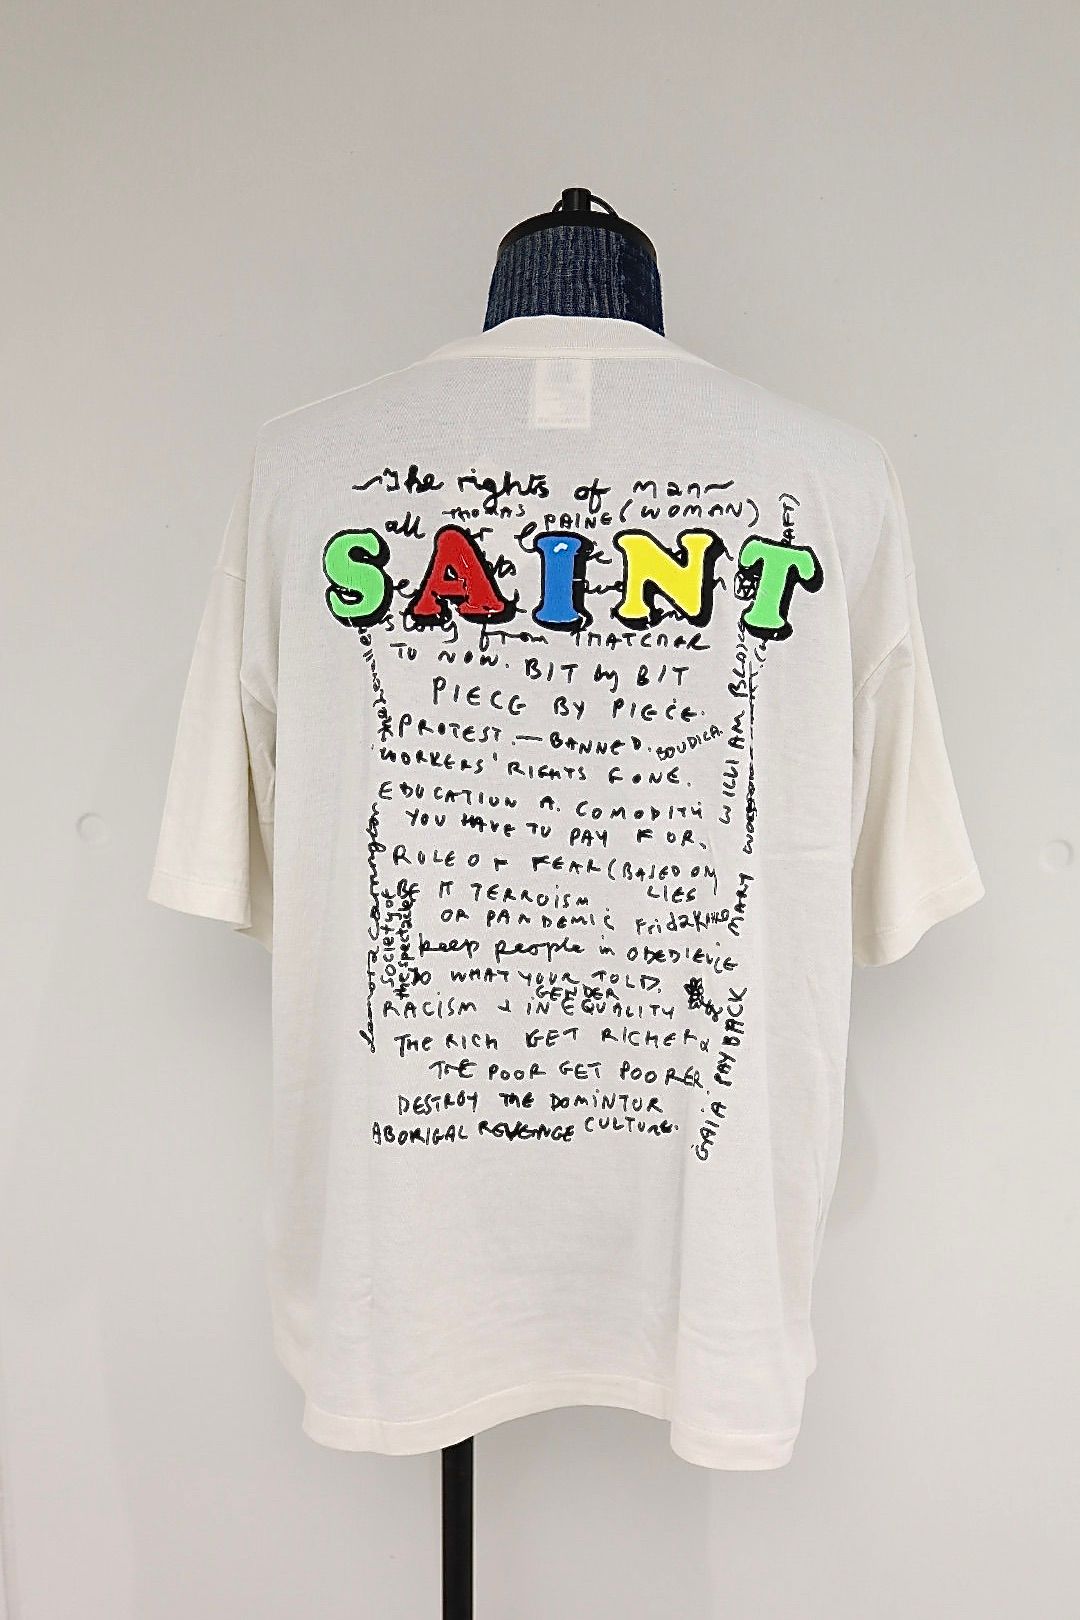 ~The rights of man~
THOMAS PAINE (WOMAN)
all
SAINT
from THATCHER
TO NOW. BIT by BIT
PIECE BY PIECE.
PROTEST. — BANNED. BOUDICA.
WORKERS' RIGHTS GONE.
EDUCATION A. COMODITY
YOU HAVE TO PAY FOR.
RULE OF FEAR (BASED ON
LIES
BE IT TERROISM
OR PANDEMIC Frida Kahlo
keep people in OBEDIENCE
DO WHAT YOUR TOLD.
GENDER
RACISM & INEQUALITY
THE RICH GET RICHER &
THE POOR GET POORER.
DESTROY THE DOMINTUR
ABORIGAL REVENGE CULTURE.
Leonora Carrington
SOCIETY OF
the spectacle
WILLIAM BLAKE
MARY
GAIA PAYBACK